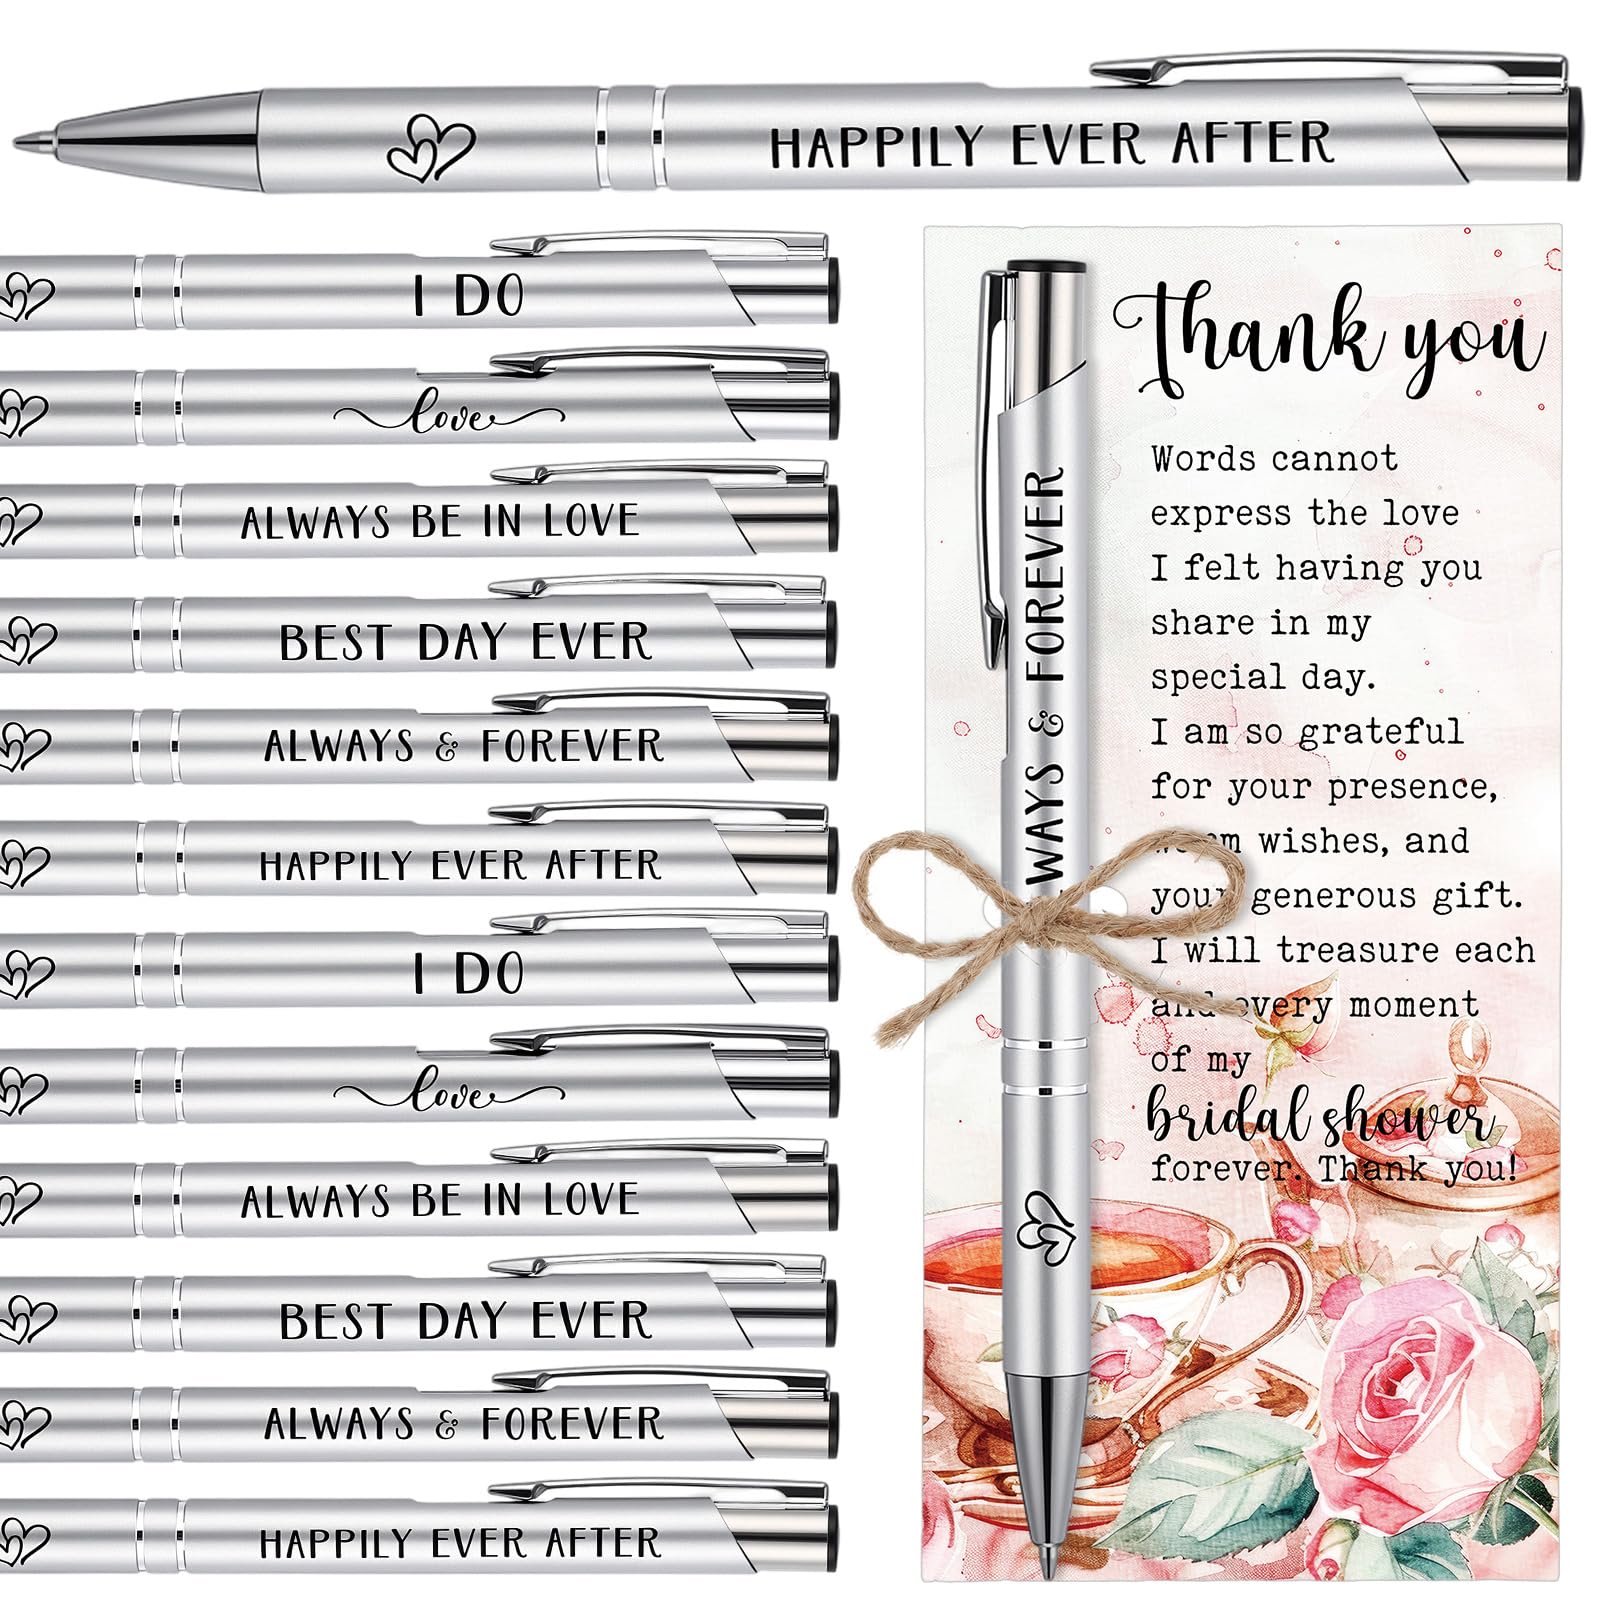 HAPPILY EVER AFTER
I DO
love
ALWAYS BE IN LOVE
BEST DAY EVER
ALWAYS & FOREVER
HAPPILY EVER AFTER
I DO
love
ALWAYS BE IN LOVE
BEST DAY EVER
ALWAYS & FOREVER
HAPPILY EVER AFTER
WAYS & FOREVER
Thank you
Words cannot
express the love
I felt having you
share in my
special day.
I am so grateful
for your presence,
warm wishes, and
your generous gift.
I will treasure each
and every moment
of my
bridal shower
forever. Thank you!